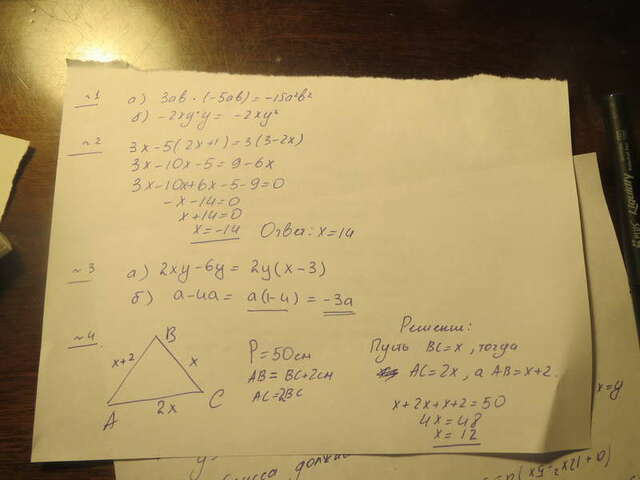 ~1 а) 3ab · (-5ab) = -15a²b²
б) -2xy · y = -2xy²
~2 3x-5(2x+1)=3(3-2x)
3x-10x-5=9-6x
3x-10x+6x-5-9=0
-x-14=0
x+14=0
x=-14 Ответ: x=14
~3 а) 2xy-6y = 2y(x-3)
б) a-4a = a(1-4) = -3a
~4
B
x+2
x
A
2x
C
P=50см
AB = BC+2см
AC=2BC
Решение:
Пусть BC=x, тогда
AC=2x, а AB=x+2.
x+2x+x+2=50
4x=48
x=12
x=y